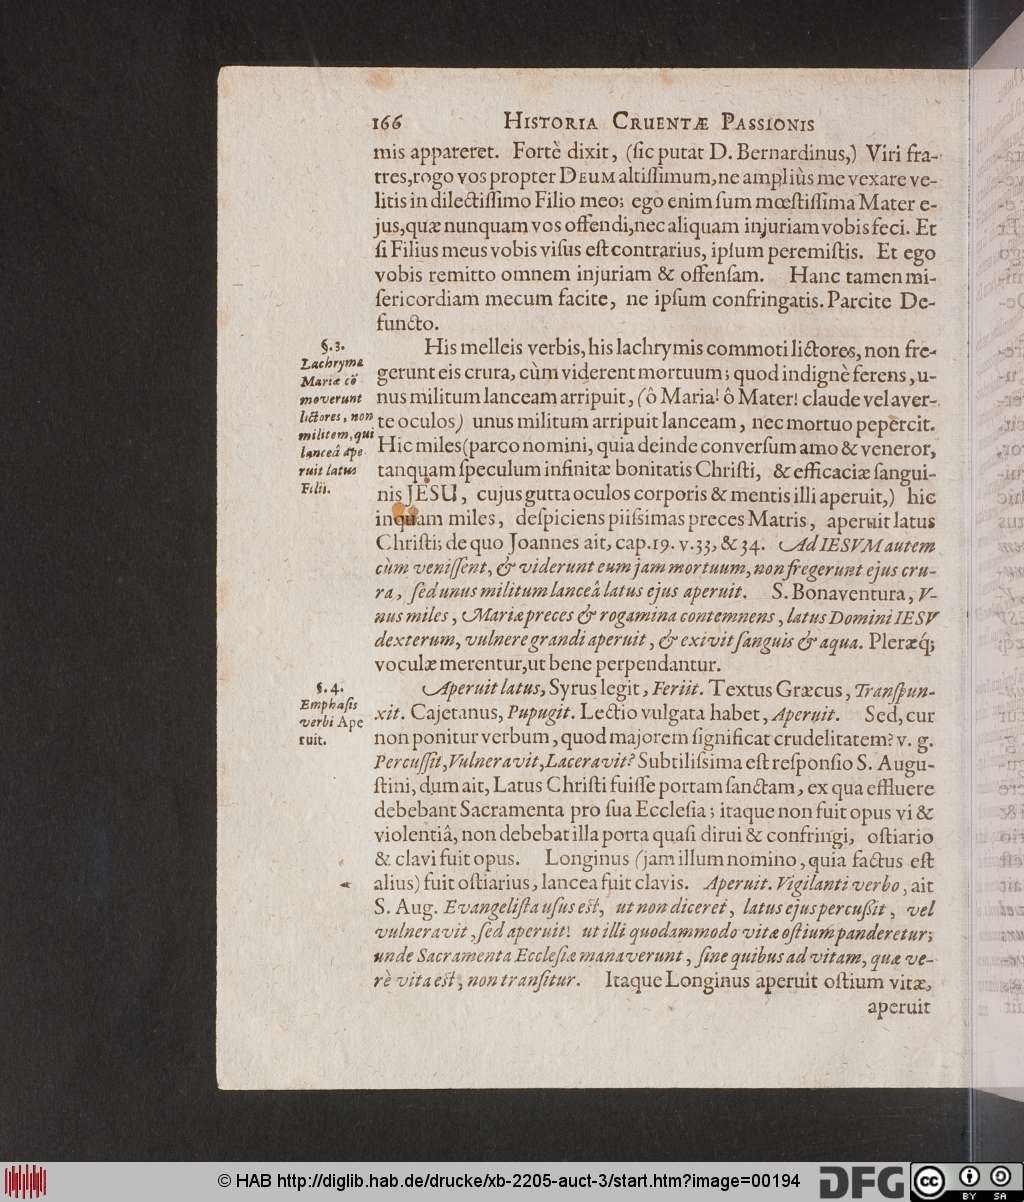 166 HISTORIA CRUENTÆ PASSIONIS
mis appareret. Fortè dixit, (ſic putat D. Bernardinus,) Viri fra-
tres, rogo vos propter DEUM altiſſimum, ne ampliùs me vexare ve-
litis in dilectiſſimo Filio meo; ego enim ſum mœſtiſſima Mater e-
jus, quæ nunquam vos offendi, nec aliquam injuriam vobis feci. Et
ſi Filius meus vobis viſus eſt contrarius, ipſum peremiſtis. Et ego
vobis remitto omnem injuriam & offenſam. Hanc tamen mi-
ſericordiam mecum facite, ne ipſum confringatis. Parcite De-
functo.
§. 3.
Lachrymæ
Mariæ cō
moverunt
lictores, non
militem, qui
lanceâ ape
ruit latus
Filii.
His melleis verbis, his lachrymis commoti lictores, non fre-
gerunt eis crura, cùm viderent mortuum; quod indignè ferens, u-
nus militum lanceam arripuit, (ô Maria! ô Mater! claude vel aver-
te oculos) unus militum arripuit lanceam, nec mortuo pepercit.
Hic miles (parco nomini, quia deinde converſum amo & veneror,
tanquam ſpeculum infinitæ bonitatis Chriſti, & efficaciæ ſangui-
nis JESU, cujus gutta oculos corporis & mentis illi aperuit,) hic
inquam miles, deſpiciens piiſsimas preces Matris, aperuit latus
Chriſti; de quo Joannes ait, cap. 19. v. 33, & 34. Ad IESVM autem
cùm veniſſent, & viderunt eum jam mortuum, non fregerunt ejus cru-
ra, ſed unus militum lanceâ latus ejus aperuit. S. Bonaventura, V-
nus miles, Mariæ preces & rogamina contemnens, latus Domini IESV
dexterum, vulnere grandi aperuit, & exivit ſanguis & aqua. Pleræq́;
voculæ merentur, ut bene perpendantur.
§. 4.
Emphaſis
verbi Ape
ruit.
Aperuit latus, Syrus legit, Feriit. Textus Græcus, Tranſpun-
xit. Cajetanus, Pupugit. Lectio vulgata habet, Aperuit. Sed, cur
non ponitur verbum, quod majorem ſignificat crudelitatem? v. g.
Percuſſit, Vulneravit, Laceravit? Subtiliſsima eſt reſponſio S. Augu-
ſtini, dum ait, Latus Chriſti fuiſſe portam ſanctam, ex qua effluere
debebant Sacramenta pro ſua Eccleſia; itaque non fuit opus vi &
violentiâ, non debebat illa porta quaſi dirui & confringi, oſtiario
& clavi fuit opus. Longinus (jam illum nomino, quia factus eſt
alius) fuit oſtiarius, lancea fuit clavis. Aperuit. Vigilanti verbo, ait
S. Aug. Evangeliſta uſus eſt, ut non diceret, latus ejus percußit, vel
vulneravit, ſed aperuit: ut illi quodammodo vitæ oſtium panderetur;
unde Sacramenta Eccleſiæ manaverunt, ſine quibus ad vitam, quæ ve-
rè vita eſt, non tranſitur. Itaque Longinus aperuit oſtium vitæ,
aperuit
© HAB http://diglib.hab.de/drucke/xb-2205-auct-3/start.htm?image=00194
DFG
cc BY SA